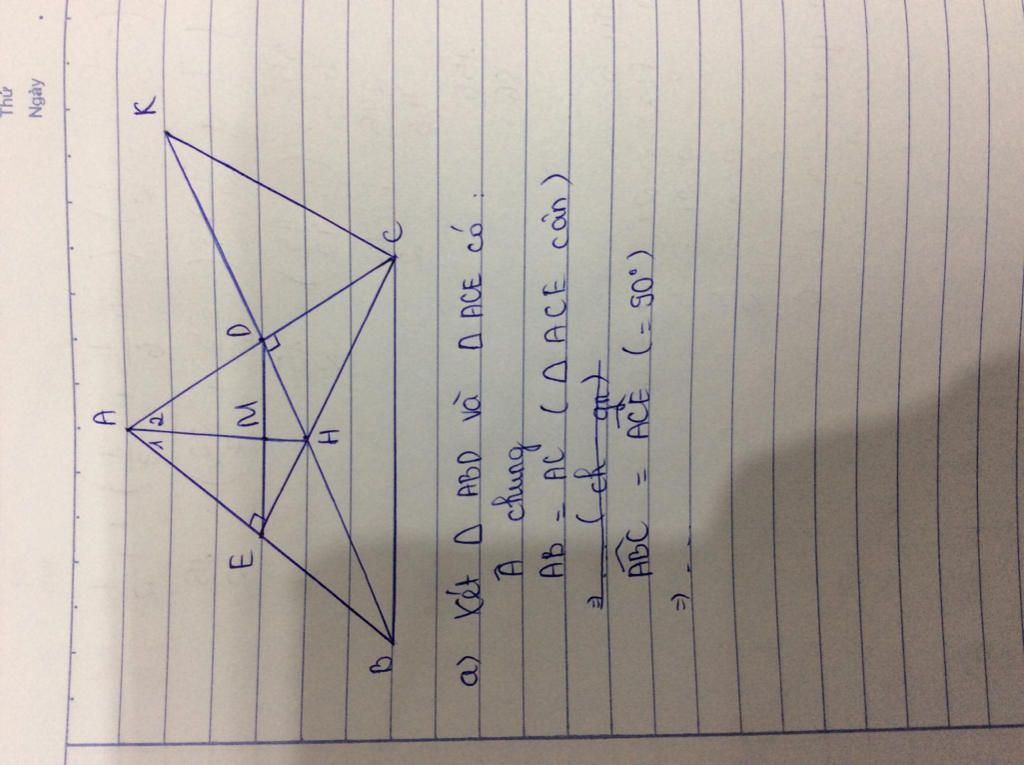 Thứ
Ngày
A
1 2
K
E
M
D
H
B
C
a) Xét Δ ABD và Δ ACE có :
Â chung
AB = AC ( Δ ACE cân )
=> ... ( ch - gn )
ABC = ACE ( = 90° )
=) ...